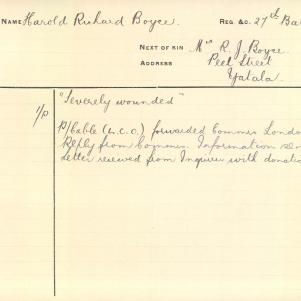 NAME Harold Richard Boyce. REG. &C. 27th Ba
NEXT OF KIN Mrs R. J. Boyce.
ADDRESS Peel Street
Yatala
"Severely wounded"
1/P P/Cable (L.C.O.) forwarded Commr London
Reply from Commr. Information sen
Letter received from Inquirer with donatio